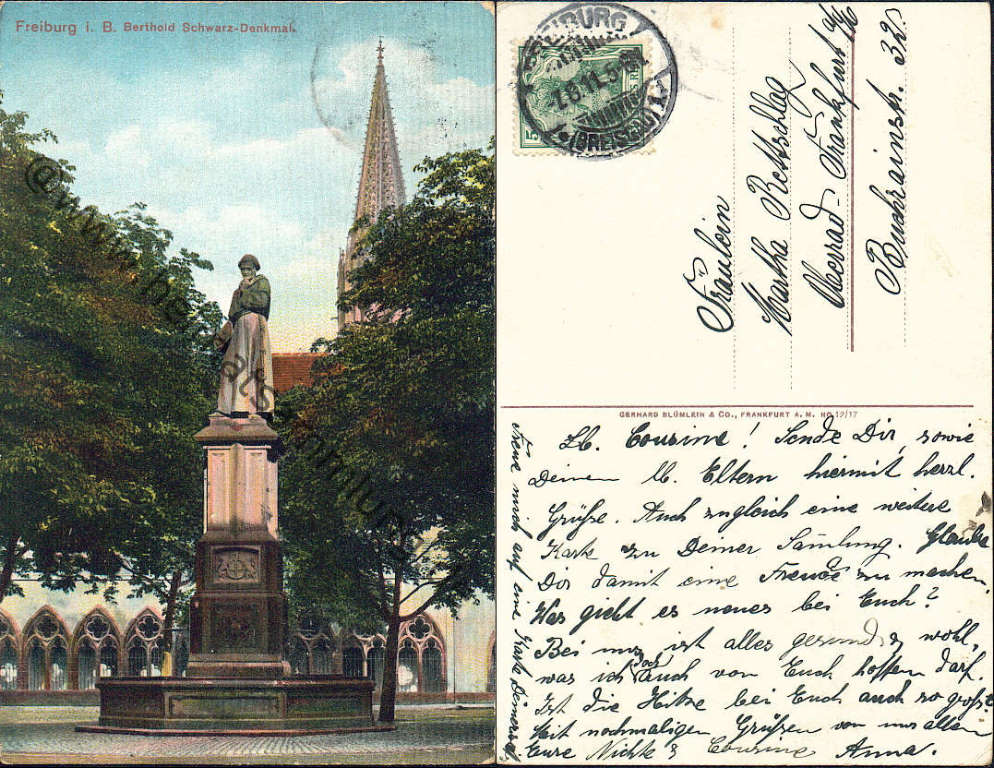 Freiburg i. B. Berthold Schwarz-Denkmal.
FREIBURG
5-6N.
(BREISGAU)
5
Fräulein
Martha Rottschlag
Oberrad-Frankfurt a/M
Buchrainstr. 32.
GERHARD BLÜMLEIN & CO., FRANKFURT A. M. NO 12/17
Lb. Cousine! Sende Dir, sowie
Deinen lb. Eltern hiermit herzl.
Grüße. Auch zugleich eine weitere
Karte zu Deiner Samlung. Glaube
Dir damit eine Freude zu machen.
Was giebt es neues bei Euch?
Bei uns ist alles gesund & wohl,
was ich doch auch von Euch hoffen darf.
Ist die Hitze bei Euch auch so groß?
Mit nochmaligen Grüßen von uns allen
Eure Nichte & Cousine Anna.
Freue mich auf eine Karte Deinerseits